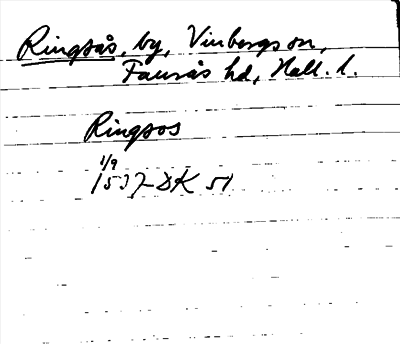 Ringsås, by, Vinbergs sn,
Faurås hd, Hall. l.
Ringsos
1/9
1537 DK 51